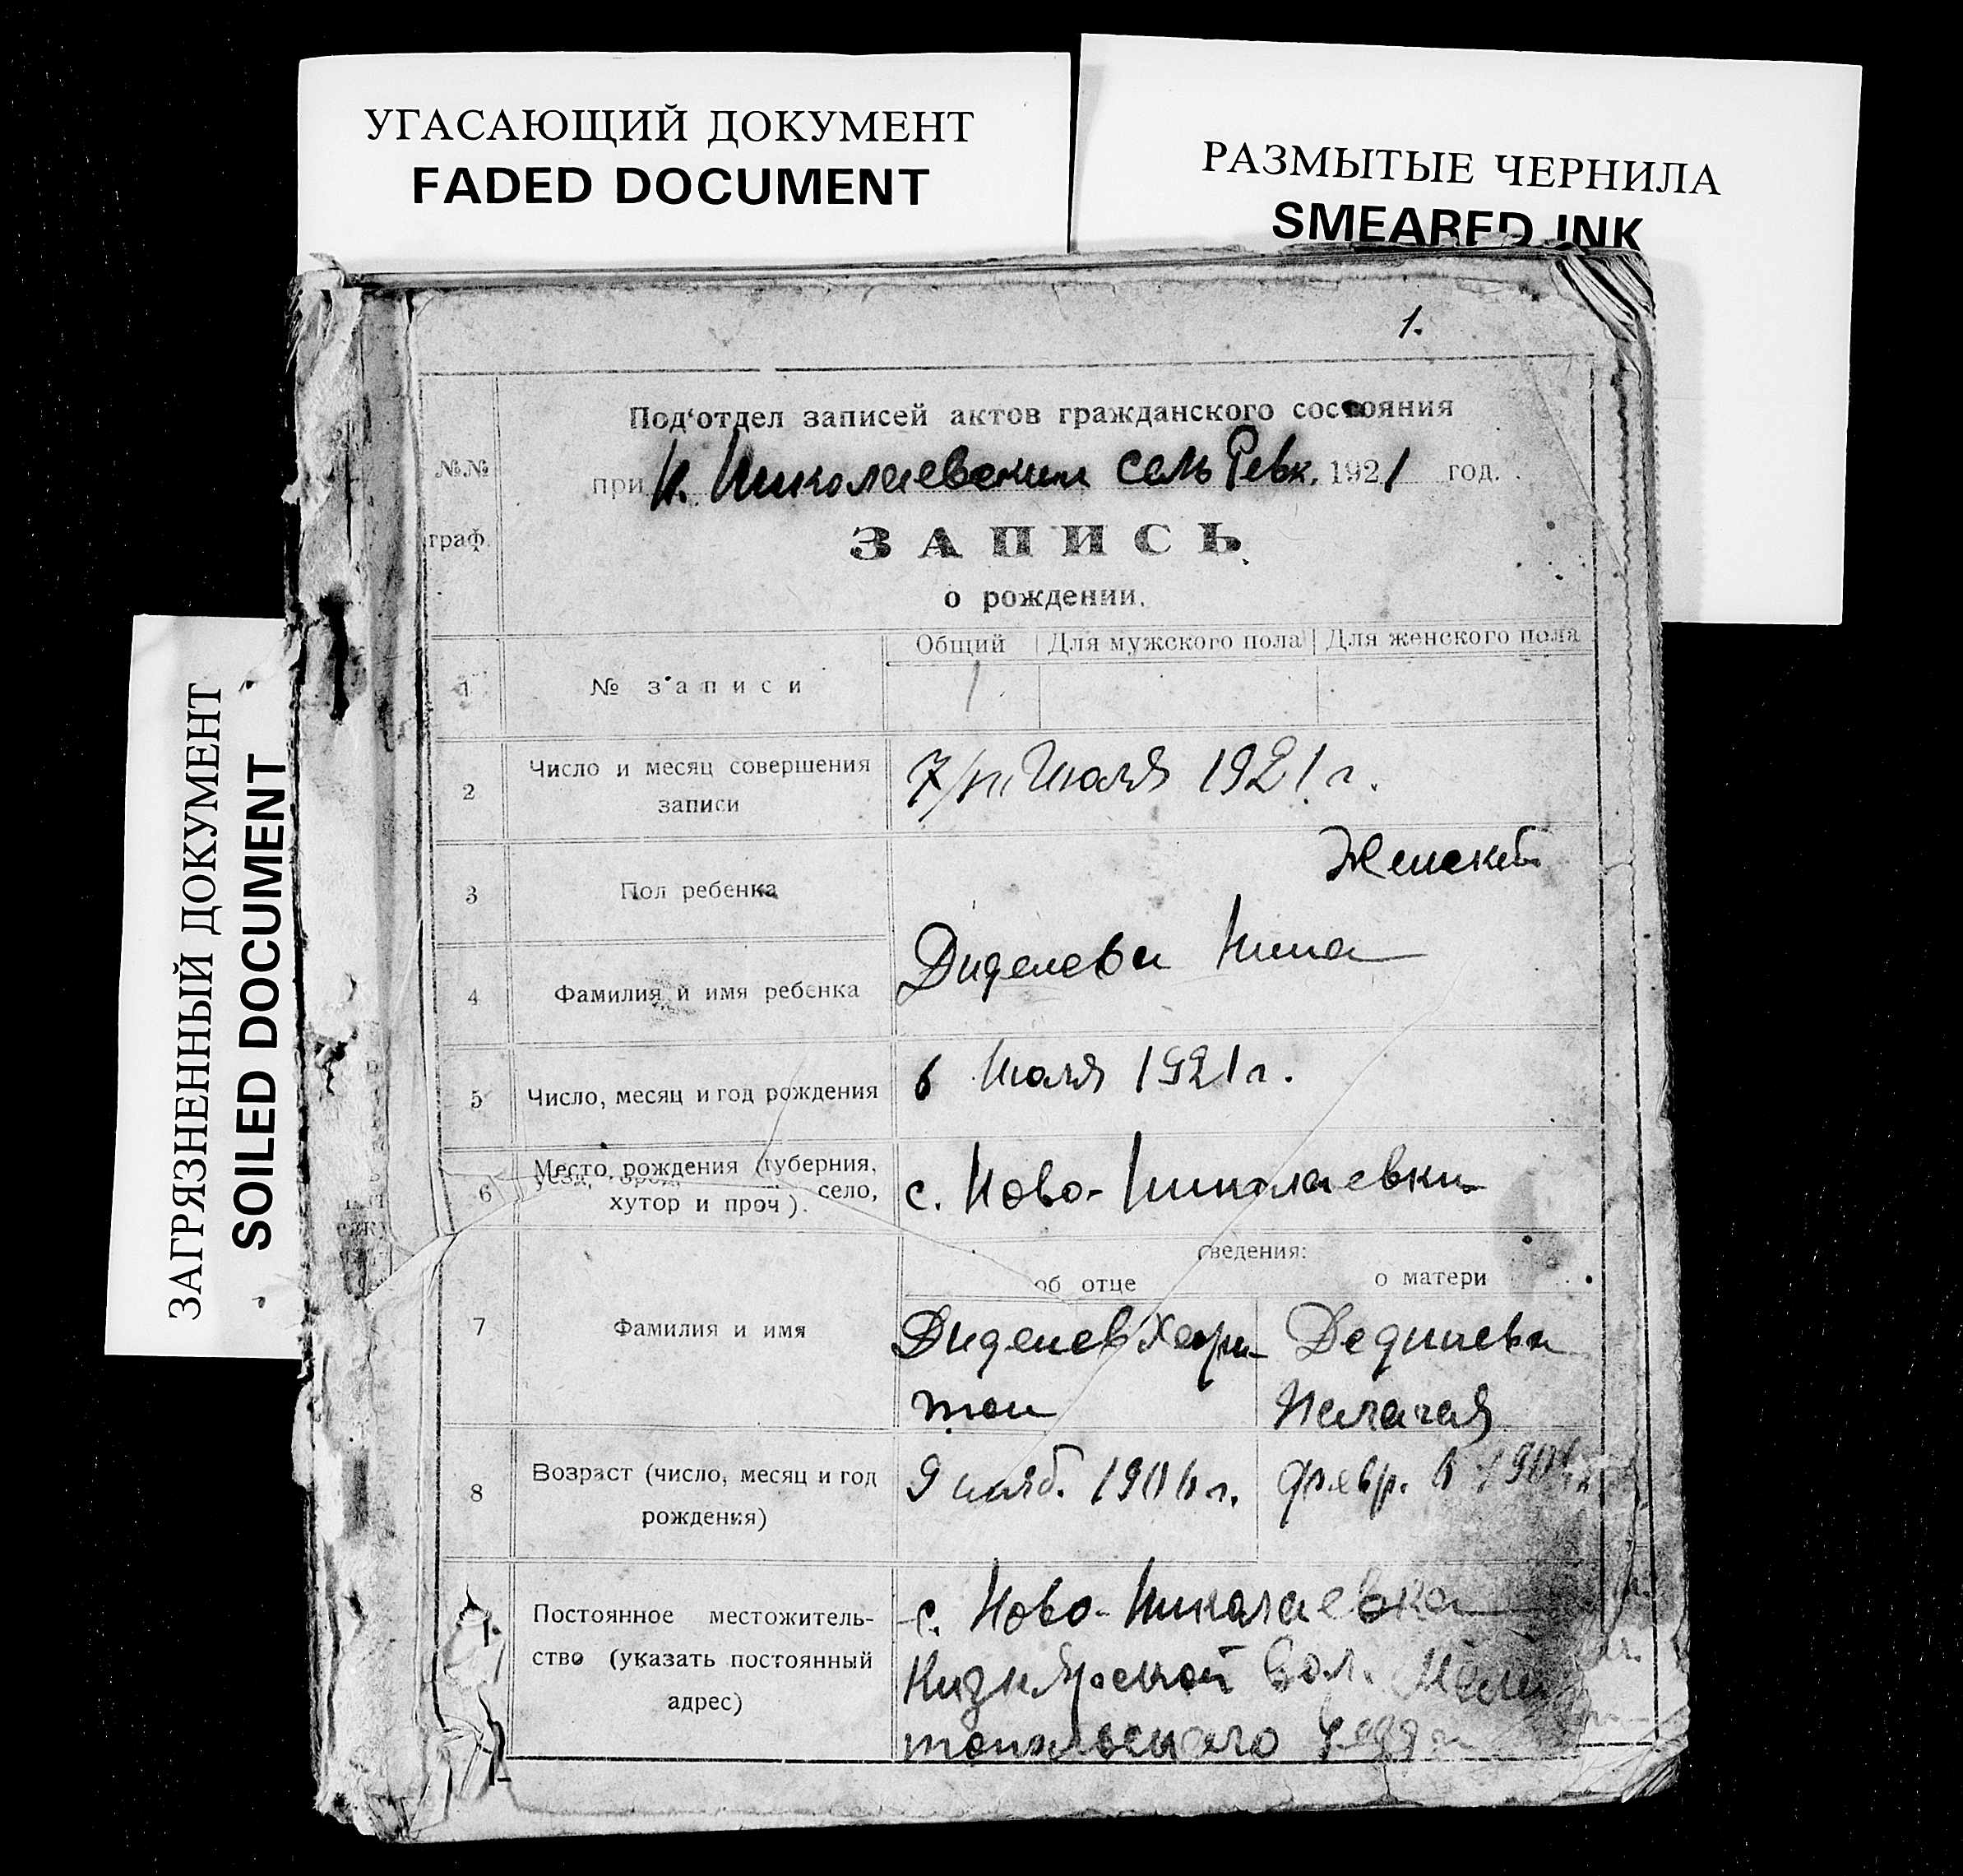 УГАСАЮЩИЙ ДОКУМЕНТ
FADED DOCUMENT
РАЗМЫТЫЕ ЧЕРНИЛА
SMEARED INK
ЗАГРЯЗНЕННЫЙ ДОКУМЕНТ
SOILED DOCUMENT
1.
Под‘отдел записей актов гражданского состояния
№№ граф.
при Н. Николаевском сель Ревк. 1921 год.
ЗАПИСЬ
о рождении.
Общий Для мужского пола Для женского пола
1 № записи 1
2 Число и месяц совершения
записи
7/VII Июля 1921 г.
3 Пол ребенка Женский
4 Фамилия и имя ребенка Диденева Нина
5 Число, месяц и год рождения 6 Июля 1921 г.
6 Место рождения (губерния,
уезд, село,
хутор и проч).
с. Ново-Николаевки
сведения:
об отце о матери
7 Фамилия и имя
Диденев Хари- 
тон
Пелагая
8 Возраст (число, месяц и год
рождения)
9 февр.
Постоянное местожитель-
ство (указать постоянный
адрес)
с. Ново-Николаевка
Кизиярской Вол. Мели
топольского Уезда